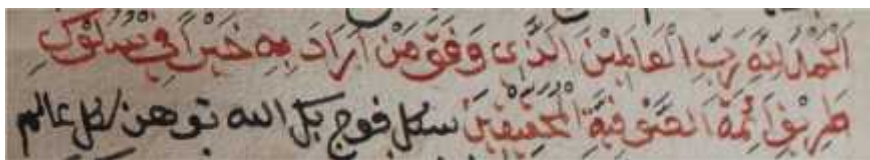 اَلْحَمْدُ لِلّٰهِ رَبِّ الْعَالَمِيْنَ الَّذِى وَفَّقَ مَنْ اَرَادَ بِهِ خَيْرًا فِيْ سُلُوْكِ
طَرِيْقِ اَئِمَّةِ الصُّوْفِيَّةِ الْمُحَقِّقِيْنَ سكل فوج بكل الله توهن كل عالم